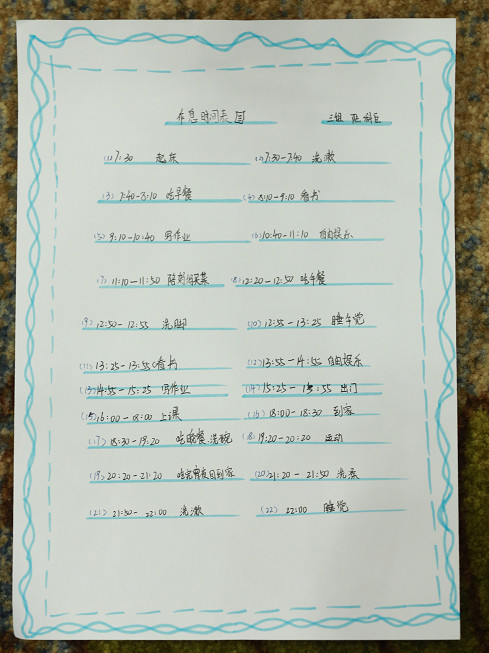 作息时间表 三组 陈
(1) 7:30 起床 (2) 7:30-7:40 洗漱
(3) 7:40-8:10 吃早餐 (4) 8:10-9:10 看书
(5) 9:10-10:40 写作业 (6) 10:40-11:10 自由娱乐
(7) 11:10-11:50 陪奶奶买菜 (8) 12:20-12:50 吃午餐
(9) 12:50-12:55 洗脚 (10) 12:55-13:25 睡午觉
(11) 13:25-13:55 看书 (12) 13:55-14:55 自由娱乐
(13) 14:55-15:25 写作业 (14) 15:25-15:55 出门
(15) 16:00-18:00 上课 (16) 18:00-18:30 到家
(17) 18:30-19:20 吃晚餐、洗碗 (18) 19:20-20:20 运动
(19) 20:20-21:20 吃完宵夜回到家 (20) 21:20-21:50 洗澡
(21) 21:50-22:00 洗漱 (22) 22:00 睡觉